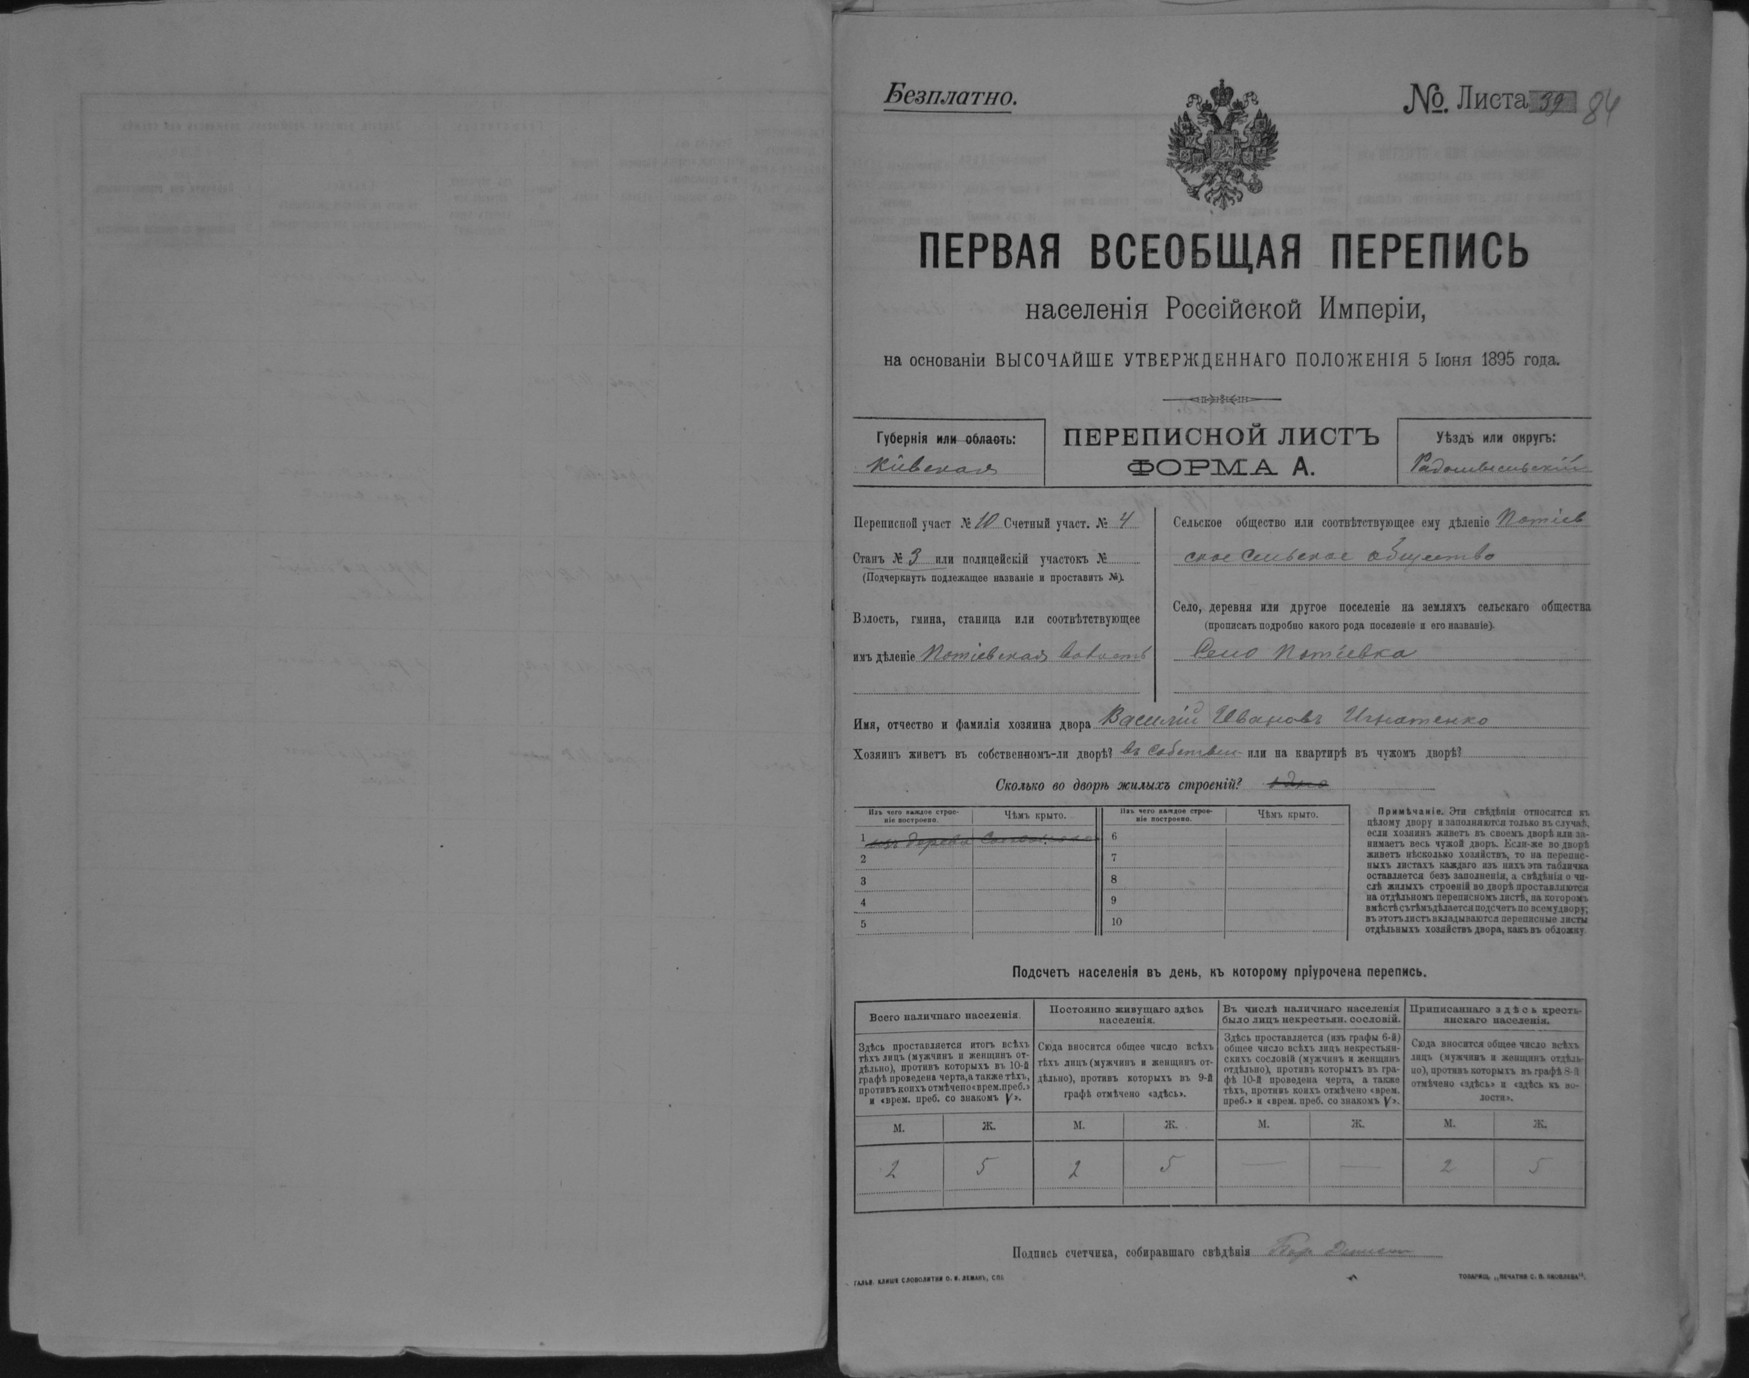 Безплатно.
№ Листа 39 84
ПЕРВАЯ ВСЕОБЩАЯ ПЕРЕПИСЬ
населенія Россійской Имперіи,
на основаніи ВЫСОЧАЙШЕ УТВЕРЖДЕННАГО ПОЛОЖЕНІЯ 5 Іюня 1895 года.
Губернія или область:
Кіевская
ПЕРЕПИСНОЙ ЛИСТЪ
ФОРМА А.
Уѣздъ или округъ:
Радомысльскій
Переписной участ № 10 Счетный участ. № 4
Станъ № 3 или полицейскій участокъ №
(Подчеркнуть подлежащее названіе и проставить №).
Волость, гмина, станица или соотвѣтствующее
имъ дѣленіе Потіевская волость
Сельское общество или соотвѣтствующее ему дѣленіе Потіев
ское сельское общество
Село, деревня или другое поселеніе на земляхъ сельскаго общества
(прописать подробно какого рода поселеніе и его названіе).
Село Потіевка
Имя, отчество и фамилія хозяина двора Василій Ивановъ Игнатенко
Хозяинъ живетъ въ собственномъ-ли дворѣ? въ собствен или на квартирѣ въ чужомъ дворѣ?
Сколько во дворѣ жилыхъ строеній? одно
Изъ чего каждое строе-
ніе построено.
Чѣмъ крыто.
Изъ чего каждое строе-
ніе построено.
Чѣмъ крыто.
1 изъ дерева
6
2
7
3
8
4
9
5
10
Примѣчаніе. Эти свѣдѣнія относятся къ
цѣлому двору и заполняются только въ случаѣ,
если хозяинъ живетъ въ своемъ дворѣ или за-
нимаетъ весь чужой дворъ. Если-же во дворѣ
живетъ нѣсколько хозяйствъ, то на перепис-
ныхъ листахъ каждаго изъ нихъ эта табличка
оставляется безъ заполненія, а свѣдѣнія о чи-
слѣ жилыхъ строеній во дворѣ проставляются
на отдѣльномъ переписномъ листѣ, на которомъ
вмѣстѣ съ тѣмъ дѣлается подсчетъ по всему двору;
въ этотъ листъ вкладываются переписные листы
отдѣльныхъ хозяйствъ двора, какъ въ обложку
Подсчетъ населенія въ день, къ которому пріурочена перепись.
Всего наличнаго населенія.
Здѣсь проставляется итогъ всѣхъ
тѣхъ лицъ (мужчинъ и женщинъ от-
дѣльно), противъ которыхъ въ 10-й
графѣ проведена черта, а также тѣхъ,
противъ коихъ отмѣчено «врем. преб.»
и «врем. преб. со знакомъ V».
Постоянно живущаго здѣсь
населенія.
Сюда вносится общее число всѣхъ
тѣхъ лицъ (мужчинъ и женщинъ от-
дѣльно), противъ которыхъ въ 9-й
графѣ отмѣчено «здѣсь».
Въ числѣ наличнаго населенія
было лицъ некрестьян. сословій.
Здѣсь проставляется (изъ графы 6-й)
общее число всѣхъ лицъ некрестьян-
скихъ сословій (мужчинъ и женщинъ
отдѣльно), противъ которыхъ въ гра-
фѣ 10-й проведена черта, а также
тѣхъ, противъ коихъ отмѣчено «врем.
преб.» и «врем. преб. со знакомъ V».
Приписаннаго здѣсь кресть-
янскаго населенія.
Сюда вносится общее число всѣхъ
лицъ (мужчинъ и женщинъ отдѣль-
но), противъ которыхъ въ графѣ 8-й
отмѣчено «здѣсь» и «здѣсь къ во-
лости».
М. Ж. М. Ж. М. Ж. М. Ж.
2 5 2 5 — — 2 5
Подпись счетчика, собиравшаго свѣдѣнія
ГАЛЬВ. КЛИШЕ СЛОВОЛИТНИ О. И. ЛЕМАНЪ, СПБ.
ТОВАРИЩ. „ПЕЧАТНЯ С. П. ЯКОВЛЕВА“.